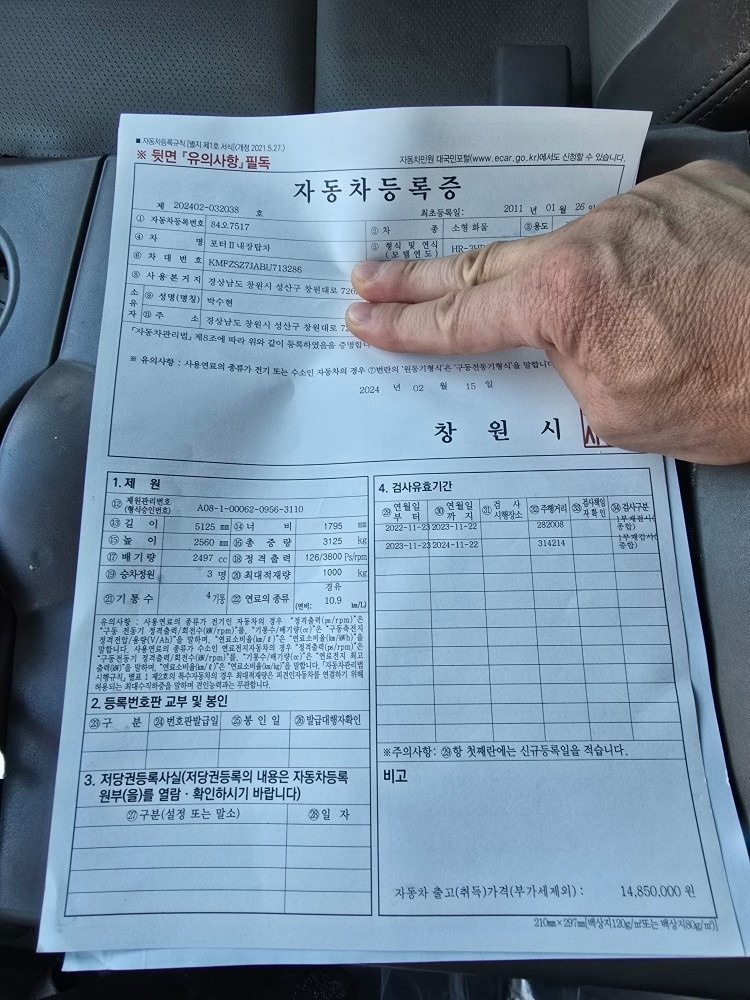 ■ 자동차등록규칙 [별지 제1호 서식]<개정 2021.5.27.>
※ 뒷면 『유의사항』 필독
자동차민원 대국민포털(www.ecar.go.kr)에서도 신청할 수 있습니다.
자동차등록증
제 202402-032038 호
최초등록일: 2011 년 01 월 26 일
① 자동차등록번호 84오7517 ② 차 종 소형 화물 ③ 용도
④ 차 명 포터Ⅱ내장탑차 ⑤ 형식 및 연식 (모델연도)
⑥ 차 대 번 호 KMFZSZ7JABU713286
⑧ 사 용 본 거 지 경상남도 창원시 성산구 창원대로
소유자 ⑨ 성명(명칭) 박수현
주 소 경상남도 창원시 성산구 창원대로
「자동차관리법」 제8조에 따라 위와 같이 등록하였음을 증명합니
※ 유의사항 : 사용연료의 종류가 전기 또는 수소인 자동차의 경우 ⑦번란의 '원동기형식'은 '구동전동기형식'을 말합니
2024 년 02 월 15 일
창 원 시
1. 제 원
⑫ 제원관리번호 (형식승인번호) A08-1-00062-0956-3110
⑬ 길 이 5125 mm ⑭ 너 비 1795 mm
⑮ 높 이 2560 mm ⑯ 총 중 량 3125 kg
⑰ 배 기 량 2497 cc ⑱ 정 격 출 력 126/3800 Ps/rpm
⑲ 승차정원 3 명 ⑳ 최대적재량 1000 kg
㉑ 기 통 수 4 기통 ㉒ 연료의 종류 경유 (연비: 10.9 km/L)
유의사항 : 사용연료의 종류가 전기인 자동차의 경우 "정격출력(ps/rpm)"은
"구동 전동기 정격출력/회전수(kW/rpm)"를, "기통수/배기량(cc)"은 "구동축전지
정격전압/용량(V/Ah)"을 말하며, "연료소비율(km/ℓ)"은 "연료소비율(km/kWh)"을
말합니다. 사용연료의 종류가 수소인 연료전지자동차의 경우 "정격출력(ps/rpm)"은
"구동전동기 정격출력/회전수(kW/rpm)"를, "기통수/배기량(cc)"은 "연료전지 최고
출력(kW)"을 말하며, "연료소비율(km/ℓ)"은 "연료소비율(km/kg)"을 말합니다. 「자동차관리법
시행규칙」 별표 1 제2호의 특수자동차의 경우 최대적재량은 피견인자동차를 연결하기 위해
허용되는 최대수직하중을 말하며 견인능력과는 무관합니다.
2. 등록번호판 교부 및 봉인
㉓ 구 분 ㉔ 번호판발급일 ㉕ 봉 인 일 ㉖ 발급대행자확인
3. 저당권등록사실(저당권등록의 내용은 자동차등록
원부(을)를 열람 · 확인하시기 바랍니다)
㉗ 구분(설정 또는 말소) ㉘ 일 자
4. 검사유효기간
㉙ 연월일 부 터 ㉚ 연월일 까 지 ㉛ 검 사 시행장소 ㉜ 주행거리 ㉝ 검사책임자확인 ㉞ 검사구분
2022-11-23 2023-11-22 282008 종합)
2023-11-23 2024-11-22 314214 종합)
※주의사항: ㉙항 첫째란에는 신규등록일을 적습니다.
비고
자동차 출고(취득)가격(부가세제외) : 14,850,000 원
210㎜×297㎜[백상지120g/㎡또는 백상지80g/㎡]